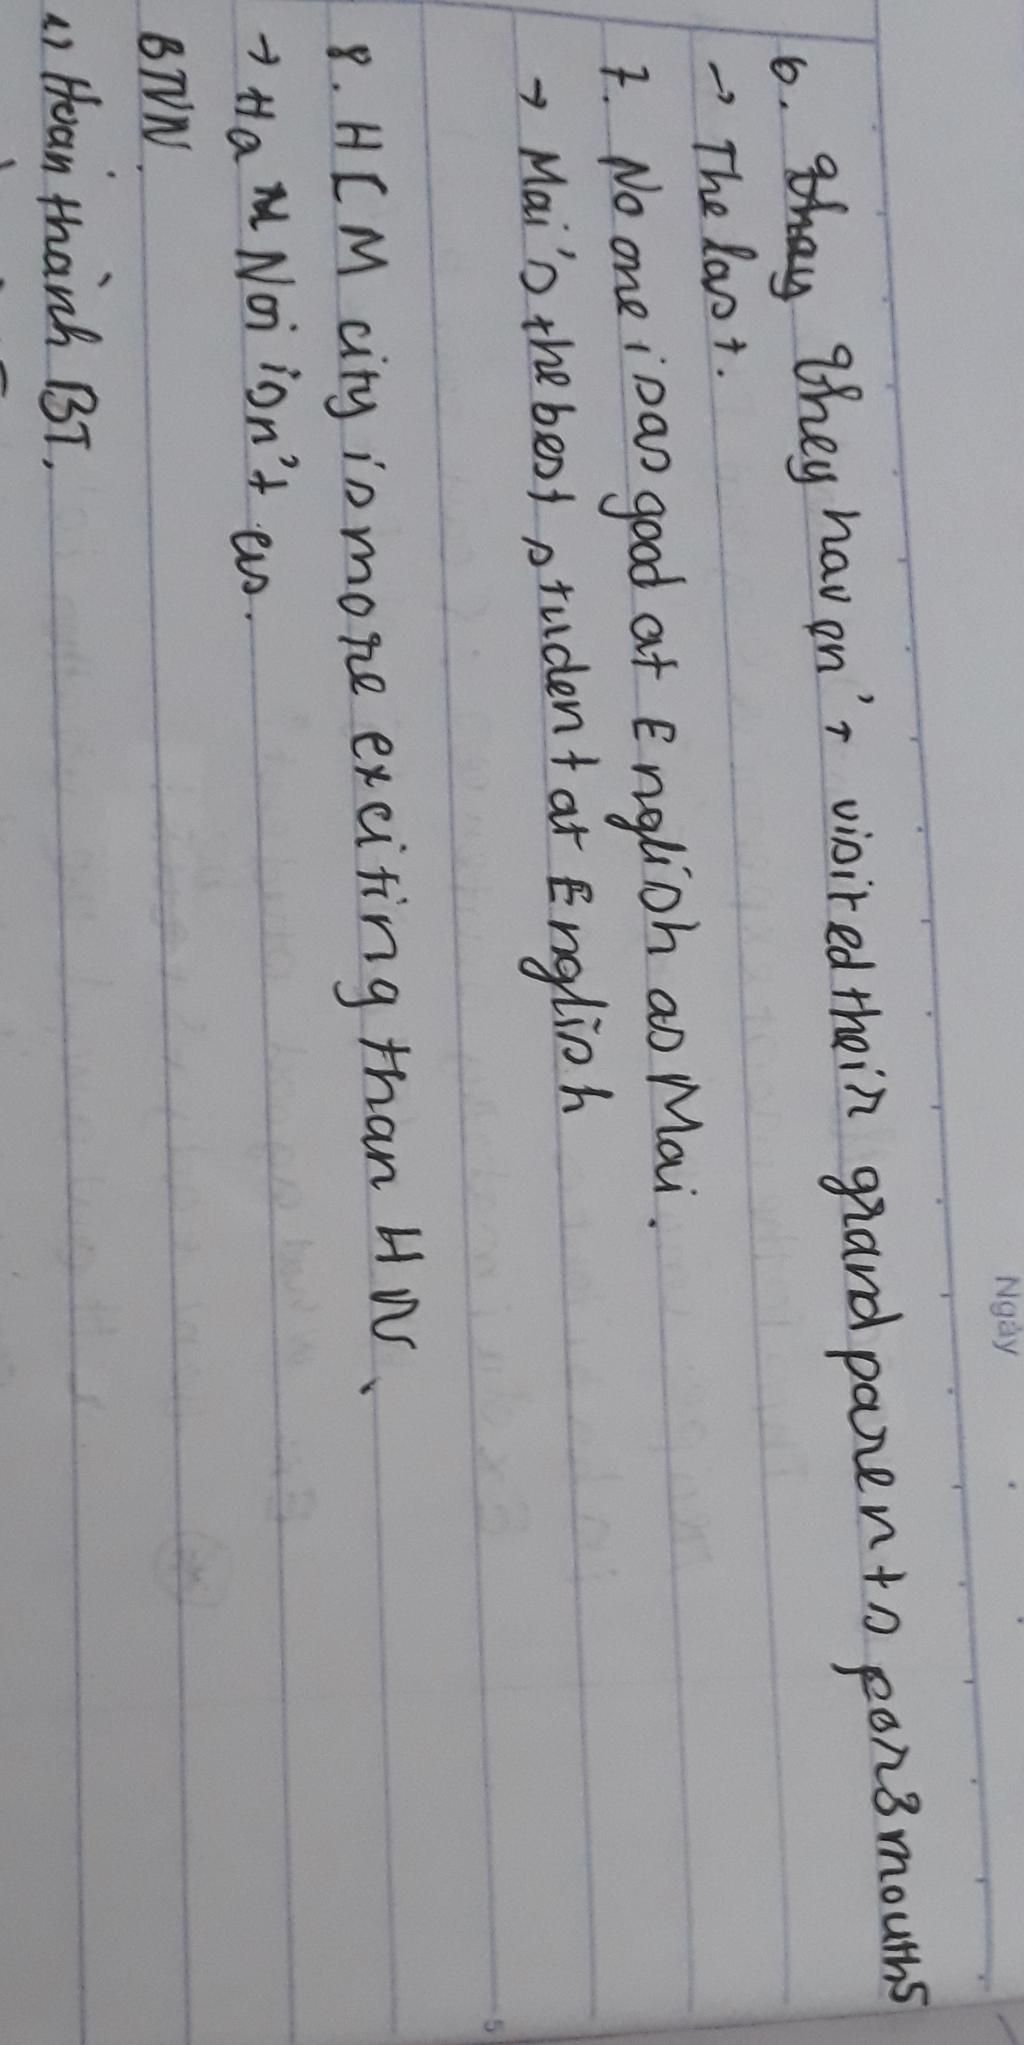 Ngày
6. They They haven't visited their grandparents for 3 mouths
→ The last.
7. No one is as good at English as Mai.
→ Mai's the best student at English
8. HCM city is more exciting than HN.
→ Ha Noi isn't as.
BTVN.
1) Hoàn thành BT.